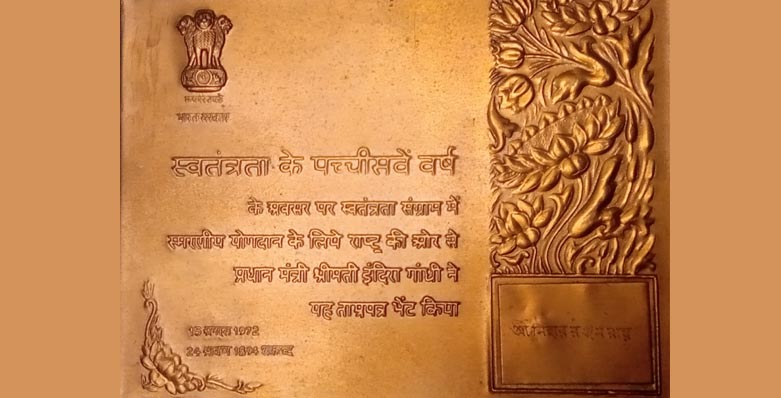 सत्यमेव जयते
भारत सरकार
स्वतंत्रता के पच्चीसवें वर्ष
के अवसर पर स्वतंत्रता संग्राम में
स्मरणीय योगदान के लिये राष्ट्र की ओर से
प्रधान मंत्री श्रीमती इंदिरा गांधी ने
यह ताम्रपत्र भेंट किया
15 अगस्त 1972
24 श्रावण 1894 शकाब्द
रंजन राय